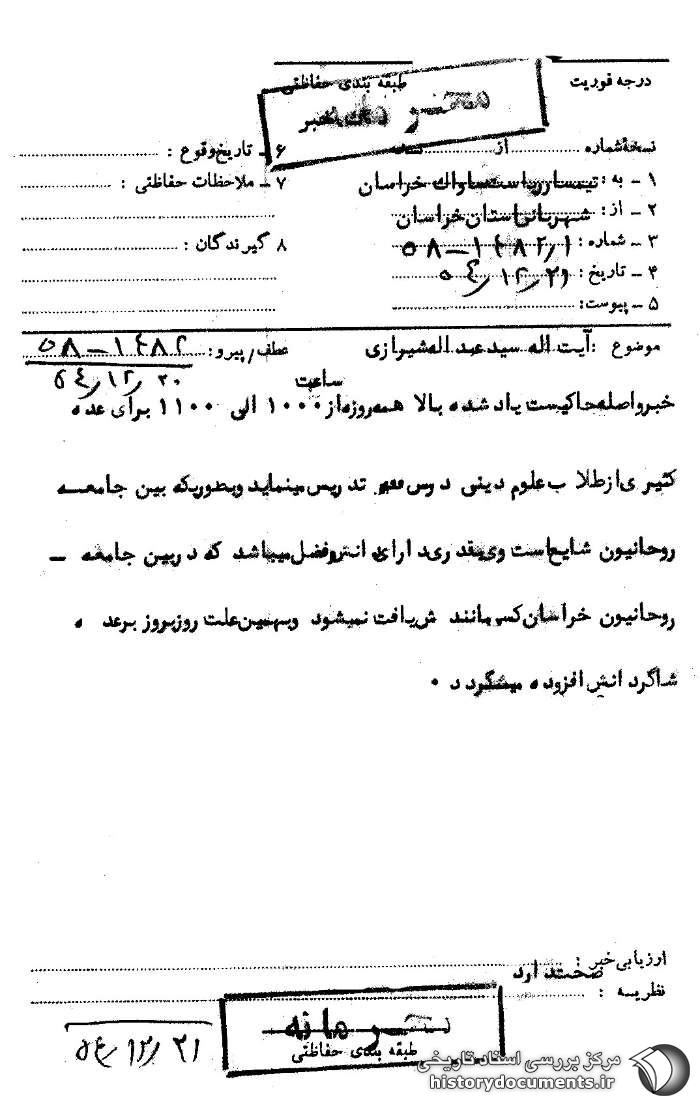 درجه فوریت
طبقه بندی حفاظتی
محرمانه
خبر
نسخهٔ شماره از
۱ - به : تیمسار ریاست ساواک خراسان
۲ - از : شهربانی استان خراسان
۳ - شماره : ۵۸-۱۴۸۲/۱
۴ - تاریخ : ۵۴/۱۲/۲۱
۵ - پیوست:
۶ - تاریخ وقوع :
۷ - ملاحظات حفاظتی :
۸ گیرندگان :
موضوع : آیت اله سید عبد اله شیرازی
عطف/پیرو : ۵۸-۱۴۸۲
۵۴/۱۲/۲۰
ساعت
خبر واصله حاکیست یاد شده بالا همه روزه از ۱۰۰۰ الی ۱۱۰۰ برای عده
کثیری از طلاب علوم دینی درس تدریس مینماید و بطوریکه بین جامعه
روحانیون شایع است وی بقدری دارای فضل میباشد که در بین جامعه -
روحانیون خراسان کسی مانندش یافت نمیشود و بهمین علت روز بروز بر عده
شاگردانش افزوده میگردد ۰
ارزیابی خبر : صحت دارد
نظریه :
محرمانه
طبقه بندی حفاظتی
۵۴/۱۲/۲۱
مرکز بررسی اسناد تاریخی
historydocuments.ir